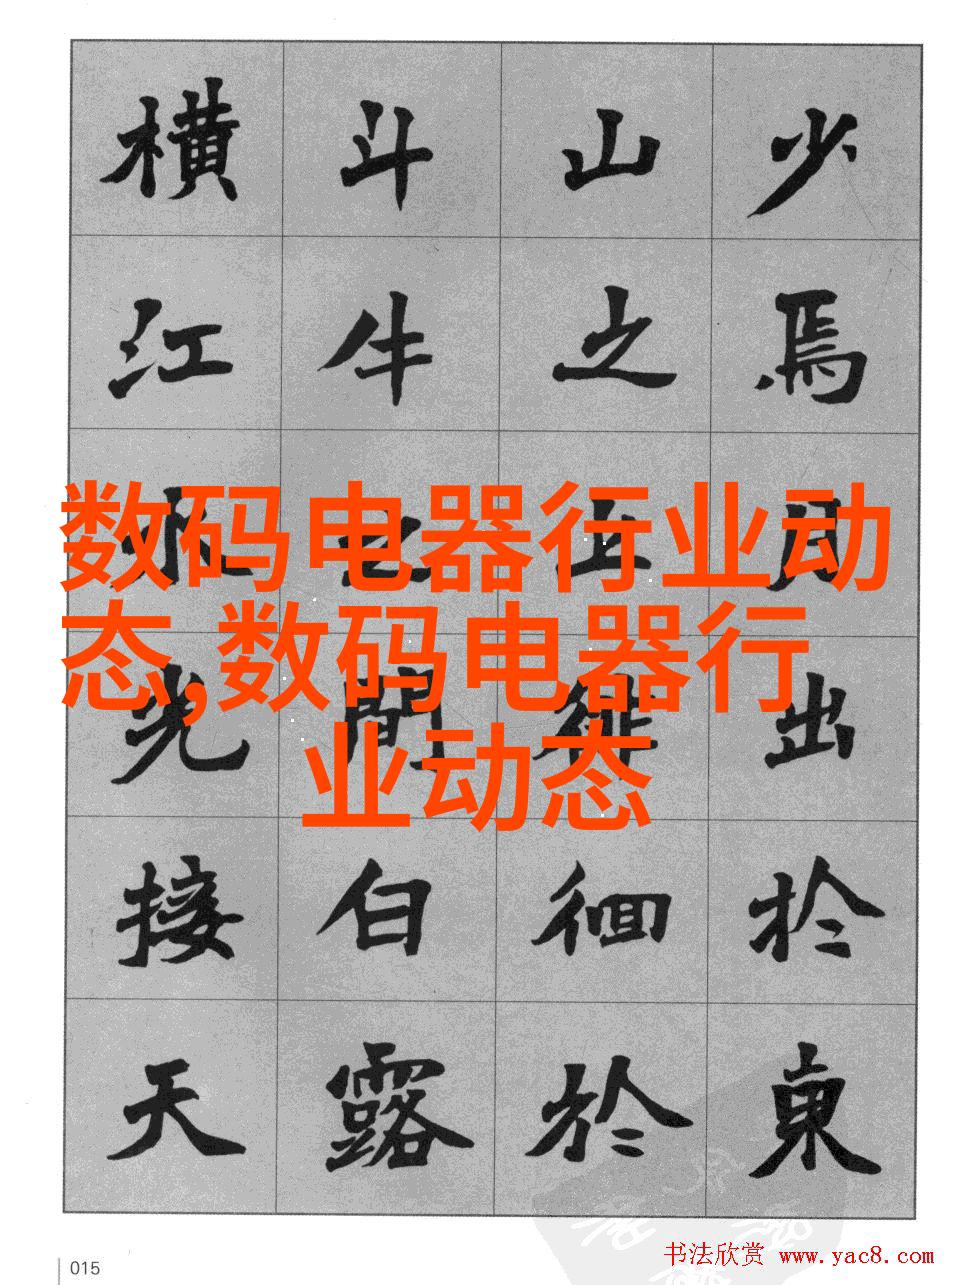 少焉月出於東
山之上徘徊於
斗牛之間白露
横江水光接天
数码电器行业动
态,数码电器行
业动态
015
书法欣赏 www.yac8.com